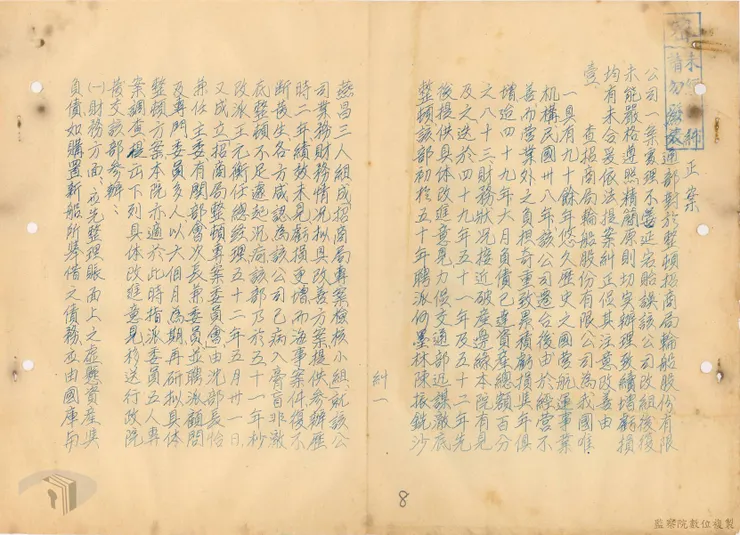 密
未行
請勿發表
糾正案
交通部對於整頓招商局輪船股份有限
公司一案處理不善延宕貽誤該公司改組後復
未能嚴格遵照精簡原則切實辦理致續增虧損
均有未合爰依法提案糾正促其注意改善由
壹、查招商局輪船股份有限公司為我國唯
一具有九十餘年悠久歷史之國營航運事業
機構民國卅八年該公司遷台後由於經營不
善而營業外之負担奇重致累積虧損與年俱
增迨四十九年六月負債已達資產總額百分
之八十三財務狀況接近破產邊緣本院有見
及之迭於四十九年五十一年及五十二年先
後提供具體改進意見力促交通部迅謀澈底
整頓該部初於五十年聘派何墨林陳振銑沙
糾一
燕昌三人組成「招商局專案檢核小組」就該公
司業務財務情況擬具改善方案提供參辦歷
時二年績效未見虧損更增而海事案件復不
斷發生各方咸認為該公司已病入膏肓非澈
底整頓不足遽起沉疴該部乃於五十一年秒
改派王元衡任總統理五十二年五月廿一日
又成立「招商局整頓專案委員會」由沈部長怡
兼任主委有關部會次長兼委員並聘派顧問
及專門委員多人以六個月為期再研拟具体
整頓方案本院亦適於此時指派委員五人專
案調查提出下列具体改進意見移送行政院
發交該部參辦：
(一)財務方面、應先整理賬面上之虛懸資產與
負債如購置新船所舉借之債務並由國庫另
8
監察院數位複製